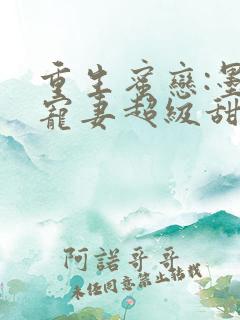 重生蜜戀:墨
寵妻超級甜
阿諾哥哥
未经同意禁止转载